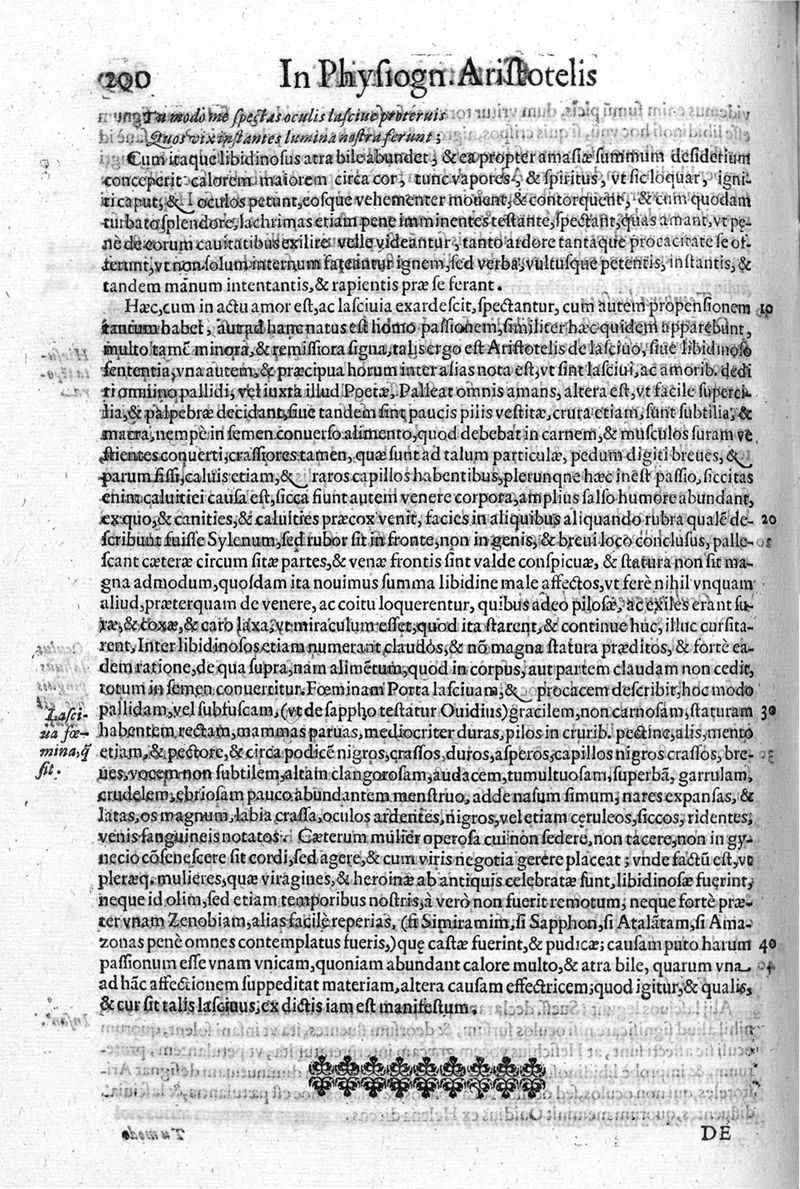 200 In Phyſiogn. Ariſtotelis
Tu modo me ſpectas oculis laſciue proteruis
Quos vix inſtantes lumina noſtra ferunt;
Cum itaque libidinoſus atra bile abundet, & ex propter amaſiæ ſummum deſiderium
conceperit calorem maiorem circa cor, tunc vapores, & ſpiritus, vt ſic loquar, igni-
ti caput; & oculos petunt, eoſque vehementer mouent, & contorquent, & cum quodam
turbato ſplendore, lachrimas etiam pene imminentes teſtante, ſpectant, quas amant, vt pę-
nè de eorum cauitatibus exilire velle videantur, tanto ardore tantaque procacitate ſe of-
ferunt, vt non ſolum internum fateantur ignem, ſed verba, vultuſque petentis, inſtantis, &
tandem manum intentantis, & rapientis præ ſe ferant.
Hæc, cum in actu amor eſt, ac laſciuia exardeſcit, ſpectantur, cum autem propenſionem 10
tantum habet, aut ad hanc natus eſt homo paſſionem, ſimiliter hæc quidem apparebunt,
multo tamẽ minora, & remiſſiora ſigna, talis ergo eſt Ariſtotelis de laſciuo, ſiue libidinoſo
ſententia, vna autem, & præcipua horum inter alias nota eſt, vt ſint laſciui, ac amorib. dedi
ti omnino pallidi, vel iuxta illud Poetæ, Palleat omnis amans, altera eſt, vt facile ſuperci-
lia, & palpebræ decidant, ſiue tandem ſint paucis pilis veſtitæ, crura etiam, ſunt ſubtilia, &
macra, nempè in ſemen conuerſo alimento, quod debebat in carnem, & muſculos ſuram ve
ſtientes conuerti, craſſiores tamen, quæ ſunt ad talum particulæ, pedum digiti breues, &
parum fiſſi, caluis etiam, & raros capillos habentibus, plerunque hæc ineſt paſſio, ſiccitas
enim caluitiei cauſa eſt, ſicca fiunt autem venere corpora, amplius ſalſo humore abundant,
ex quo, & canities, & caluities præcox venit, facies in aliquibus aliquando rubra qualẽ de- 20
ſcribunt fuiſſe Sylenum, ſed rubor ſit in fronte, non in genis, & breui loco concluſus, palle-
ſcant cæteræ circum ſitæ partes, & venæ frontis ſint valde conſpicuæ, & ſtatura non ſit ma-
gna admodum, quoſdam ita nouimus ſumma libidine male affectos, vt ferè nihil vnquam
aliud, præterquam de venere, ac coitu loquerentur, quibus adeo piloſæ, ac exiles erant ſu-
ræ, & coxæ, & caro laxa, vt miraculum eſſet, quod ita ſtarent, & continue huc, illuc curſita-
rent, Inter libidinoſos etiam numerant claudos, & nõ magna ſtatura præditos, & fortè ea-
dem ratione, de qua ſupra, nam alimẽtum, quod in corpus, aut partem claudam non cedit,
totum in ſemen conuertitur. Fœminam Porta laſciuam, & procacem deſcribit, hoc modo
pallidam, vel ſubfuſcam, (vt de ſappho teſtatur Ouidius) gracilem, non carnoſam, ſtaturam 30
habentem rectam, mammas paruas, mediocriter duras, pilos in crurib. pectine, alis, mento
etiam, & pectore, & circa podicẽ nigros, craſſos, duros, aſperos, capillos nigros craſſos, bre-
ues, vocem non ſubtilem, altam clangoroſam, audacem, tumultuoſam, ſuperbã, garrulam,
crudelem, ebrioſam pauco abundantem menſtruo, adde naſum ſimum, nares expanſas, &
latas, os magnum, labia craſſa, oculos ardentes, nigros, vel etiam cęruleos, ſiccos, ridentes,
venis ſanguineis notatos. Cæterum mulier operoſa cui non ſedere, non tacere, non in gy-
necio cõſeneſcere ſit cordi, ſed agere, & cum viris negotia gerere placeat; vnde factũ eſt, vt
pleræq. mulieres, quæ viragines, & heroinæ ab antiquis celebratæ ſunt, libidinoſæ fuerint,
neque id olim, ſed etiam temporibus noſtris, à verò non fuerit remotum; neque fortè præ-
ter vnam Zenobiam, alias facilè reperias, (ſi Simiramim, ſi Sapphon, ſi Atalãtam, ſi Ama-
zonas penè omnes contemplatus fueris,) quę caſtæ fuerint, & pudicæ; cauſam puto harum 40
paſſionum eſſe vnam vnicam, quoniam abundant calore multo, & atra bile, quarum vna
ad hãc affectionem ſuppeditat materiam, altera cauſam effectricem; quod igitur, & qualis,
& cur ſit talis laſciuus, ex dictis iam eſt manifeſtum.
Laſci-
ua fœ-
mina, q̃
ſit.
DE